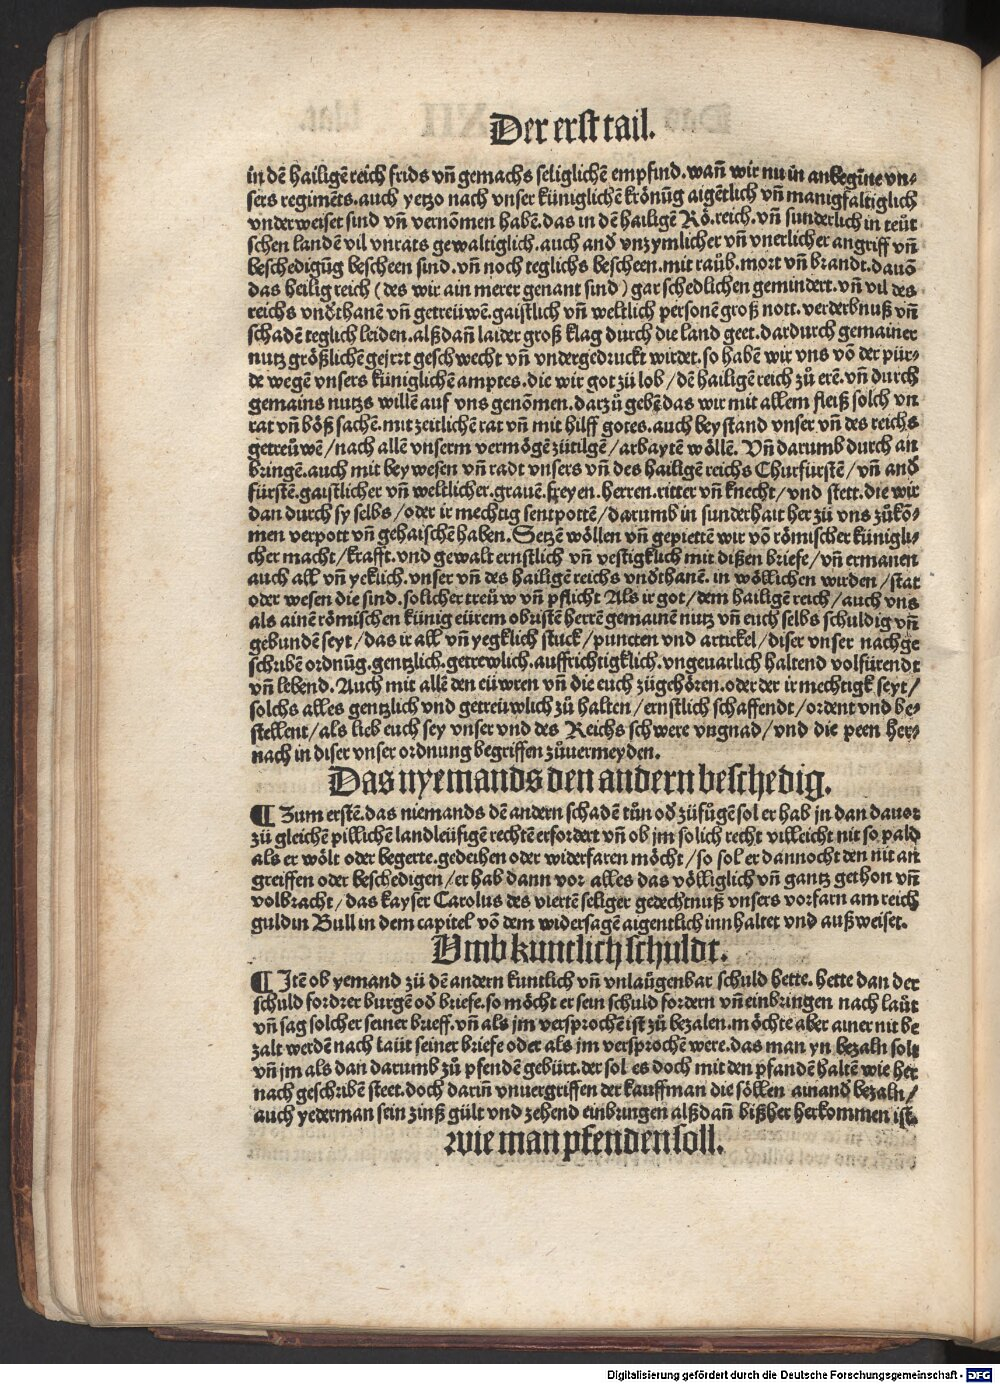 Der erst tail.
in dē hailigē reich frids vñ gemachs seliglichē empfind. wañ wir nu in anbegīne vn⸗
sers regimēts. auch yetzo nach vnser küniglichē krönūg aigētlich vñ manigfaltiglich
vnderweiset sind vñ vernōmen habē. das in dē hailigē Rö. reich. vñ sunderlich in teüt
schen landē vil vnrats gewaltiglich. auch and̄ vnzymlicher vñ vnerlicher angriff vñ
beschedigūg bescheen sind. vñ noch teglichs bescheen. mit raüb. mort vñ brandt. dauō
das heilig reich (des wir ain merer genant sind) gar schedlichen gemindert. vñ vil des
reichs vnd̄thanē vñ getreüwē. gaistlich vñ weltlich personē groß nott. verderbnuß vñ
schadē teglich leiden. alß dañ laider groß klag durch die land geet. dardurch gemainer
nutz größlichē gejrzt geschwecht vñ vndergedruckt wirdet. so habē wir vns vō der pür⸗
de wegē vnsers küniglichē amptes. die wir got zü lob / dē hailigē reich zů erē. vñ durch
gemains nutzs willē auf vns genōmen. darzů gebē das wir mit allem fleiß solch vn
rat vñ böß sachē. mit zeitlichē rat vñ mit hilff gotes. auch beystand vnser vñ des reichs
getreüwē / nach allē vnserm vermögē zütilgē / arbaytē wöllē. Vñ darumb durch an
bringē. auch mit beywesen vñ radt vnsers vñ des hailigē reichs Churfürstē / vñ and̄
fürstē. gaistlicher vñ weltlicher. grauē. freyen. herren. ritter vñ knecht / vnd stett. die wir
dan durch sy selbs / oder ir mechtig sentpottē / darumb in sunderhait her zü vns zůkō⸗
men verpott vñ gehaischē haben. Setzē wöllen vñ gepiettē wir vō römischer künigli⸗
cher macht / krafft. vnd gewalt ernstlich vñ vestigklich mit dißen briefe / vñ ermanen
auch all vñ yeklich. vnser vñ des hailigē reichs vnd̄thanē. in wöllichen wirden / stat
oder wesen die sind. solicher treüw vñ pflicht Als ir got / dem hailigē reich / auch vns
als ainē römischen künig eürem obristē herrē gemainē nutz vñ euch selbs schuldig vñ
gebundē seyt / das ir all vñ yegklich stuck / puncten vnd artickel / diser vnser nachge
schribē ordnūg. gentzlich. getrewlich. auffrichtigklich. vngeuarlich haltend volfürendt
vñ lebend. Auch mit allē den eüwren vñ die euch zügehören. oder der ir mechtigk seyt /
solchs alles gentzlich vnd getreüwlich zü halten / ernstlich schaffendt / ordent vnd be⸗
stellent / als lieb euch sey vnser vnd des Reichs schwere vngnad / vnd die peen her⸗
nach in diser vnser ordnung begriffen züuermeyden.
Das nyemands den andern beschedig.
¶ Zum erstē. das niemands dē andern schadē tůn od̄ züfůgē sol er hab jn dan dauor
zü gleichē pillichē landleüfigē rechtē erfordert vñ ob jm solich recht villeicht nit so pald
als er wölt oder begerte. gedeihen oder widerfaren möcht / so sol er dannocht den nit an
greiffen oder beschedigen / er hab dann vor alles das völliglich vñ gantz gethon vñ
volbracht / das kayser Carolus des viertē seliger gedechtnuß vnsers vorfarn am reich
guldin Bull in dem capitel vō dem widersagē aigentlich innhaltet vnd außweiset.
Vmb kuntlich schuldt.
¶ Itē ob yemand zü dē andern kuntlich vñ vnlaügenbar schuld hette. hette dan der
schuld fordrer burgē od̄ briefe. so möcht er sein schuld fordern vñ einbringen nach laüt
vñ sag solcher seiner brieff. vñ als jm versprochē ist zů bezalen. möchte aber ainer nit be
zalt werdē nach laüt seiner briefe oder als jm versprochē were. das man yn bezaln solt
vñ jm als dan darumb zů pfendē gebürt. der sol es doch mit den pfandē haltē wie her
nach geschribē steet. doch dariñ vnuergriffen der kauffman die söllen ainand̄ bezaln /
auch yederman sein zinß gült vnd zehend einbringen alß dañ bißher herkommen ist.
wie man pfenden soll.
Digitalisierung gefördert durch die Deutsche Forschungsgemeinschaft - DFG